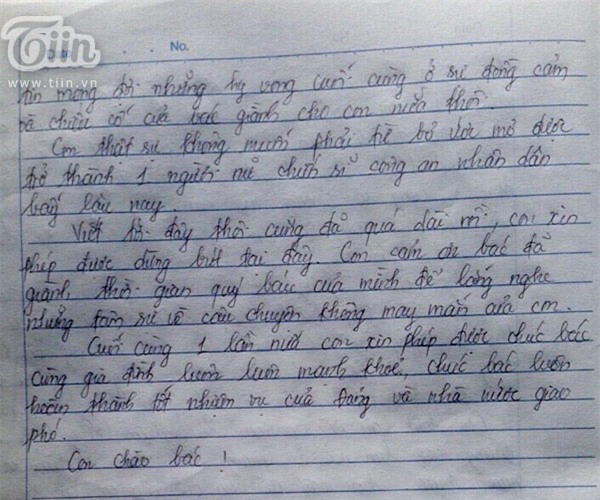 Tiin
www.tiin.vn
No.
tin mong đợi những hy vọng cuối cùng ở sự đồng cảm
và chiếu cố của bác giành cho con nữa thôi.
Con thật sự không muốn phải từ bỏ ước mơ được
trở thành 1 người nữ chiến sĩ công an nhân dân
bấy lâu nay.
Viết tới đây thôi cũng đã quá dài rồi, con xin
phép được dừng bút tại đây. Con cám ơn bác đã
giành thời gian quý báu của mình để lắng nghe
những tâm sự về câu chuyện không may mắn của con.
Cuối cùng 1 lần nữa con xin phép được chúc bác
cùng gia đình luôn luôn mạnh khoẻ, chúc bác luôn
hoàn thành tốt nhiệm vụ của Đảng và nhà nước giao
phó.
Con chào bác !